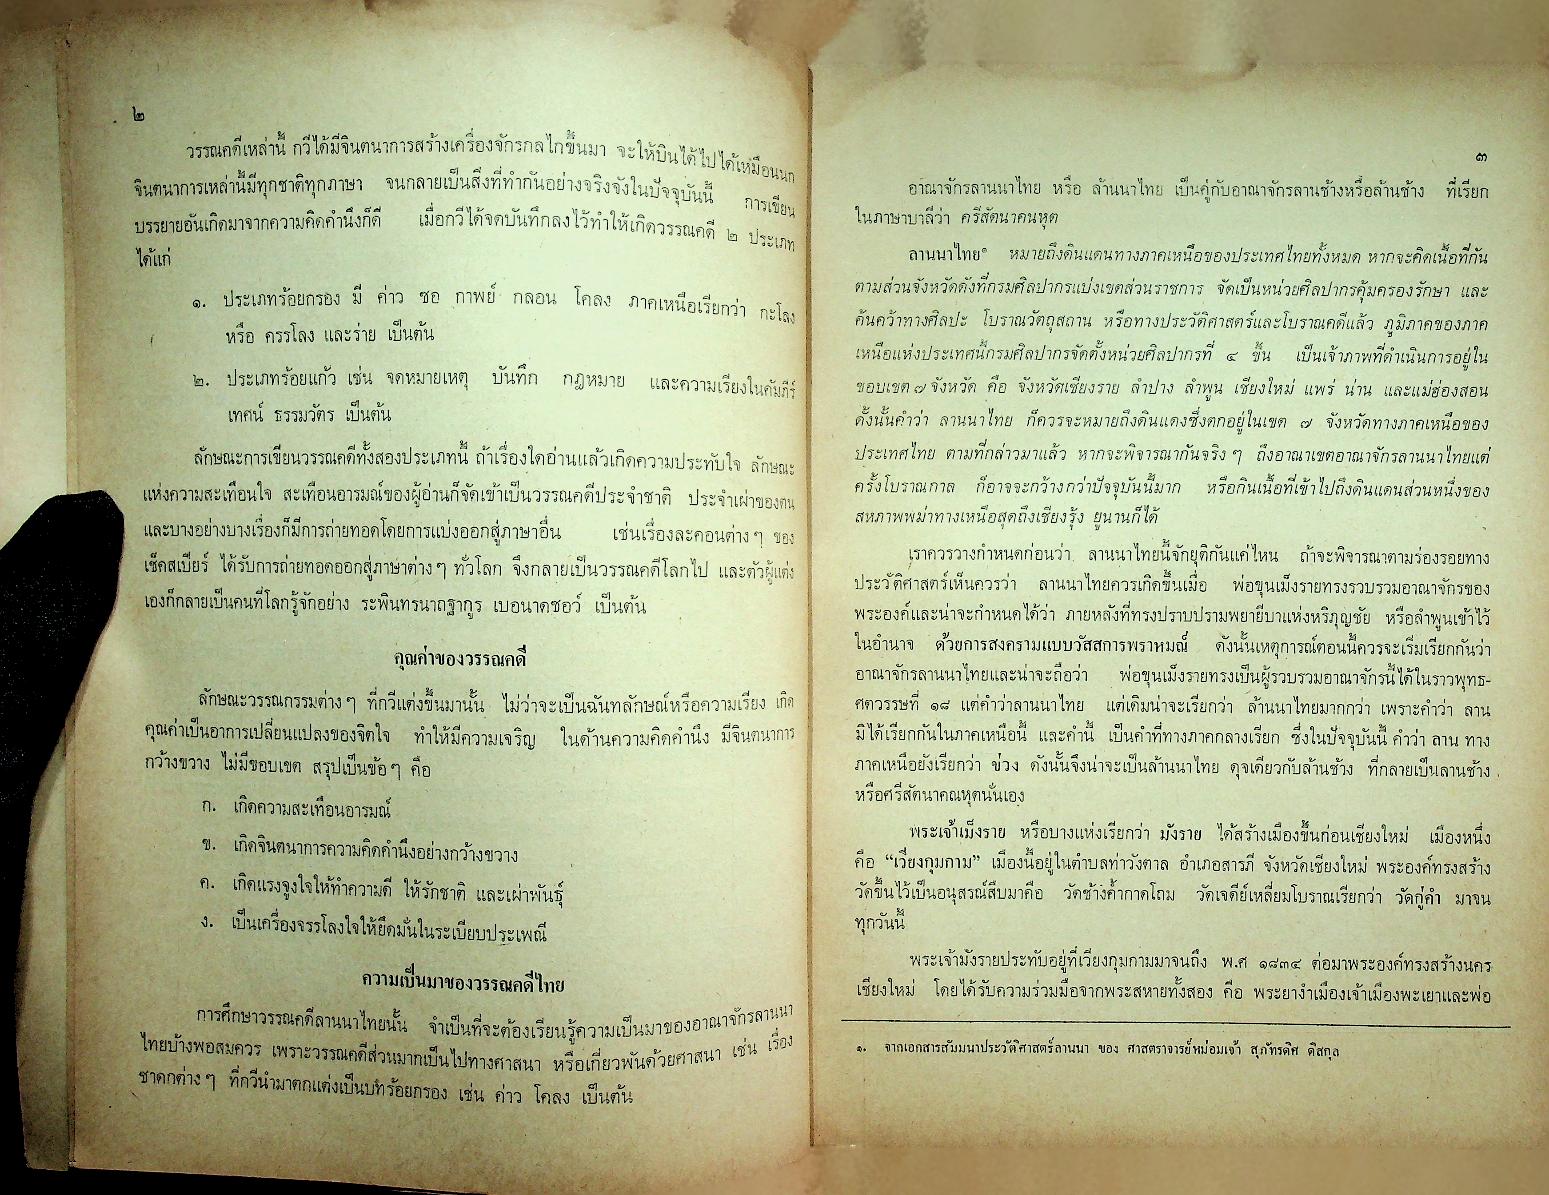 ๒
วรรณคดีเหล่านี้ กวีได้มีจินตนาการสร้างเครื่องจักรกลไกขึ้นมา จะให้บินได้ไปได้เหมือนนก
จินตนาการเหล่านี้มีทุกชาติทุกภาษา จนกลายเป็นสิ่งที่ทำกันอย่างจริงจังในปัจจุบันนี้ การเขียน
บรรยายอันเกิดมาจากความคิดคำนึงก็ดี เมื่อกวีได้จดบันทึกลงไว้ทำให้เกิดวรรณคดี ๒ ประเภท
ได้แก่
๑. ประเภทร้อยกรอง มี ค่าว ซอ กาพย์ กลอน โคลง ภาคเหนือเรียกว่า กะโลง
หรือ ครรโลง และร่าย เป็นต้น
๒. ประเภทร้อยแก้ว เช่น จดหมายเหตุ บันทึก กฎหมาย และความเรียงในคัมภีร์
เทศน์ ธรรมวัตร เป็นต้น
ลักษณะการเขียนวรรณคดีทั้งสองประเภทนี้ ถ้าเรื่องใดอ่านแล้วเกิดความประทับใจ ลักษณะ
แห่งความสะเทือนใจ สะเทือนอารมณ์ของผู้อ่านก็จัดเข้าเป็นวรรณคดีประจำชาติ ประจำเผ่าของตน
และบางอย่างบางเรื่องก็มีการถ่ายทอดโดยการแบ่งออกสู่ภาษาอื่น เช่นเรื่องละคอนต่างๆ ของ
เช็คสเปียร์ ได้รับการถ่ายทอดออกสู่ภาษาต่างๆ ทั่วโลก จึงกลายเป็นวรรณคดีโลกไป และตัวผู้แต่ง
เองก็กลายเป็นคนที่โลกรู้จักอย่าง ระพินทรนาถฐากูร เบอนาดชอว์ เป็นต้น
คุณค่าของวรรณคดี
ลักษณะวรรณกรรมต่างๆ ที่กวีแต่งขึ้นมานั้น ไม่ว่าจะเป็นฉันทลักษณ์หรือความเรียง เกิด
คุณค่าเป็นอาการเปลี่ยนแปลงของจิตใจ ทำให้มีความเจริญ ในด้านความคิดคำนึง มีจินตนาการ
กว้างขวาง ไม่มีขอบเขต สรุปเป็นข้อๆ คือ
ก. เกิดความสะเทือนอารมณ์
ข. เกิดจินตนาการความคิดคำนึงอย่างกว้างขวาง
ค. เกิดแรงจูงใจให้ทำความดี ให้รักชาติ และเผ่าพันธุ์
ง. เป็นเครื่องจรรโลงใจให้ยึดมั่นในระเบียบประเพณี
ความเป็นมาของวรรณคดีไทย
การศึกษาวรรณคดีลานนาไทยนั้น จำเป็นที่จะต้องเรียนรู้ความเป็นมาของอาณาจักรลานนา
ไทยบ้างพอสมควร เพราะวรรณคดีส่วนมากเป็นไปทางศาสนา หรือเกี่ยวพันด้วยศาสนา เช่น เรื่อง
ชาดกต่างๆ ที่กวีนำมาตกแต่งเป็นบทร้อยกรอง เช่น ค่าว โคลง เป็นต้น
๓
อาณาจักรลานนาไทย หรือ ล้านนาไทย เป็นคู่กับอาณาจักรลานช้างหรือล้านช้าง ที่เรียก
ในภาษาบาลีว่า ศรีสัตนาคนหุต
ลานนาไทย๑ หมายถึงดินแดนทางภาคเหนือของประเทศไทยทั้งหมด หากจะคิดเนื้อที่กัน
ตามส่วนจังหวัดดังที่กรมศิลปากรแบ่งเขตส่วนราชการ จัดเป็นหน่วยศิลปากรคุ้มครองรักษา และ
ค้นคว้าทางศิลปะ โบราณวัตถุสถาน หรือทางประวัติศาสตร์และโบราณคดีแล้ว ภูมิภาคของภาค
เหนือแห่งประเทศนี้กรมศิลปากรจัดตั้งหน่วยศิลปากรที่ ๔ ขึ้น เป็นเจ้าภาพที่ดำเนินการอยู่ใน
ขอบเขต ๗ จังหวัด คือ จังหวัดเชียงราย ลำปาง ลำพูน เชียงใหม่ แพร่ น่าน และแม่ฮ่องสอน
ดั้งนั้นคำว่า ลานนาไทย ก็ควรจะหมายถึงดินแดงซึ่งตกอยู่ในเขต ๗ จังหวัดทางภาคเหนือของ
ประเทศไทย ตามที่กล่าวมาแล้ว หากจะพิจารณากันจริงๆ ถึงอาณาเขตอาณาจักรลานนาไทยแต่
ครั้งโบราณกาล ก็อาจจะกว้างกว่าปัจจุบันนี้มาก หรือกินเนื้อที่เข้าไปถึงดินแดนส่วนหนึ่งของ
สหภาพพม่าทางเหนือสุดถึงเชียงรุ้ง ยูนานก็ได้
เราควรวางกำหนดก่อนว่า ลานนาไทยนี้จักยุติกันแค่ไหน ถ้าจะพิจารณาตามร่องรอยทาง
ประวัติศาสตร์เห็นควรว่า ลานนาไทยควรเกิดขึ้นเมื่อ พ่อขุนเม็งรายทรงรวบรวมอาณาจักรของ
พระองค์และน่าจะกำหนดได้ว่า ภายหลังที่ทรงปราบปรามพยายีบาแห่งหริภุญชัย หรือลำพูนเข้าไว้
ในอำนาจ ด้วยการสงครามแบบวัสสการพราหมณ์ ดังนั้นเหตุการณ์ตอนนี้ควรจะเริ่มเรียกกันว่า
อาณาจักรลานนาไทยและน่าจะถือว่า พ่อขุนเม็งรายทรงเป็นผู้รวบรวมอาณาจักรนี้ได้ในราวพุทธ-
ศตวรรษที่ ๑๘ แต่คำว่าลานนาไทย แต่เดิมน่าจะเรียกว่า ล้านนาไทยมากกว่า เพราะคำว่า ลาน
มิได้เรียกกันในภาคเหนือนี้ และคำนี้ เป็นคำที่ทางภาคกลางเรียก ซึ่งในปัจจุบันนี้ คำว่า ลาน ทาง
ภาคเหนือยังเรียกว่า ข่วง ดังนั้นจึงน่าจะเป็นล้านนาไทย ดุจเดียวกับล้านช้าง ที่กลายเป็นลานช้าง
หรือศรีสัตนาคณหุตนั่นเอง
พระเจ้าเม็งราย หรือบางแห่งเรียกว่า มังราย ได้สร้างเมืองขึ้นก่อนเชียงใหม่ เมืองหนึ่ง
คือ “เวียงกุมกาม” เมืองนี้อยู่ในตำบลท่าวังตาล อำเภอสารภี จังหวัดเชียงใหม่ พระองค์ทรงสร้าง
วัดขึ้นไว้เป็นอนุสรณ์สืบมาคือ วัดช้างค้ำกาดโถม วัดเจดีย์เหลี่ยมโบราณเรียกว่า วัดกู่คำ มาจน
ทุกวันนี้
พระเจ้ามังรายประทับอยู่ที่เวียงกุมกามมาจนถึง พ.ศ ๑๘๓๔ ต่อมาพระองค์ทรงสร้างนคร
เชียงใหม่ โดยได้รับความร่วมมือจากพระสหายทั้งสอง คือ พระยางำเมืองเจ้าเมืองพะเยาและพ่อ
๑. จากเอกสารสัมมนาประวัติศาสตร์ลานนา ของ ศาสตราจารย์หม่อมเจ้า สุภัทรดิศ ดิสกุล